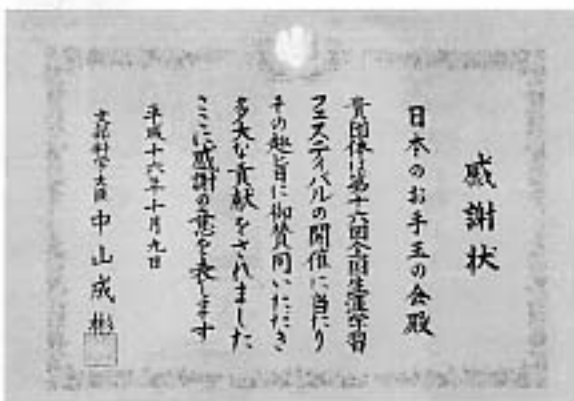 感謝状
日本のお手玉の会殿
貴団体は第十六回全国生涯学習
フェスティバルの開催に当たり
その趣旨に御賛同いただき
多大な貢献をされました
ここに感謝の意を表します
平成十六年十月九日
文部科学大臣 中山成彬